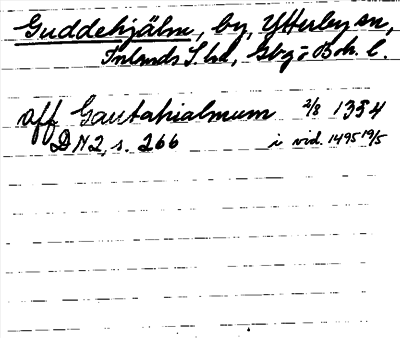 Guddehjälm, by, Ytterby sn,
Inlands S. hd, Gbg o Boh. l.
aff Gautahialmum 2/8 1354
DN2, s. 266 i vid. 1495 19/5